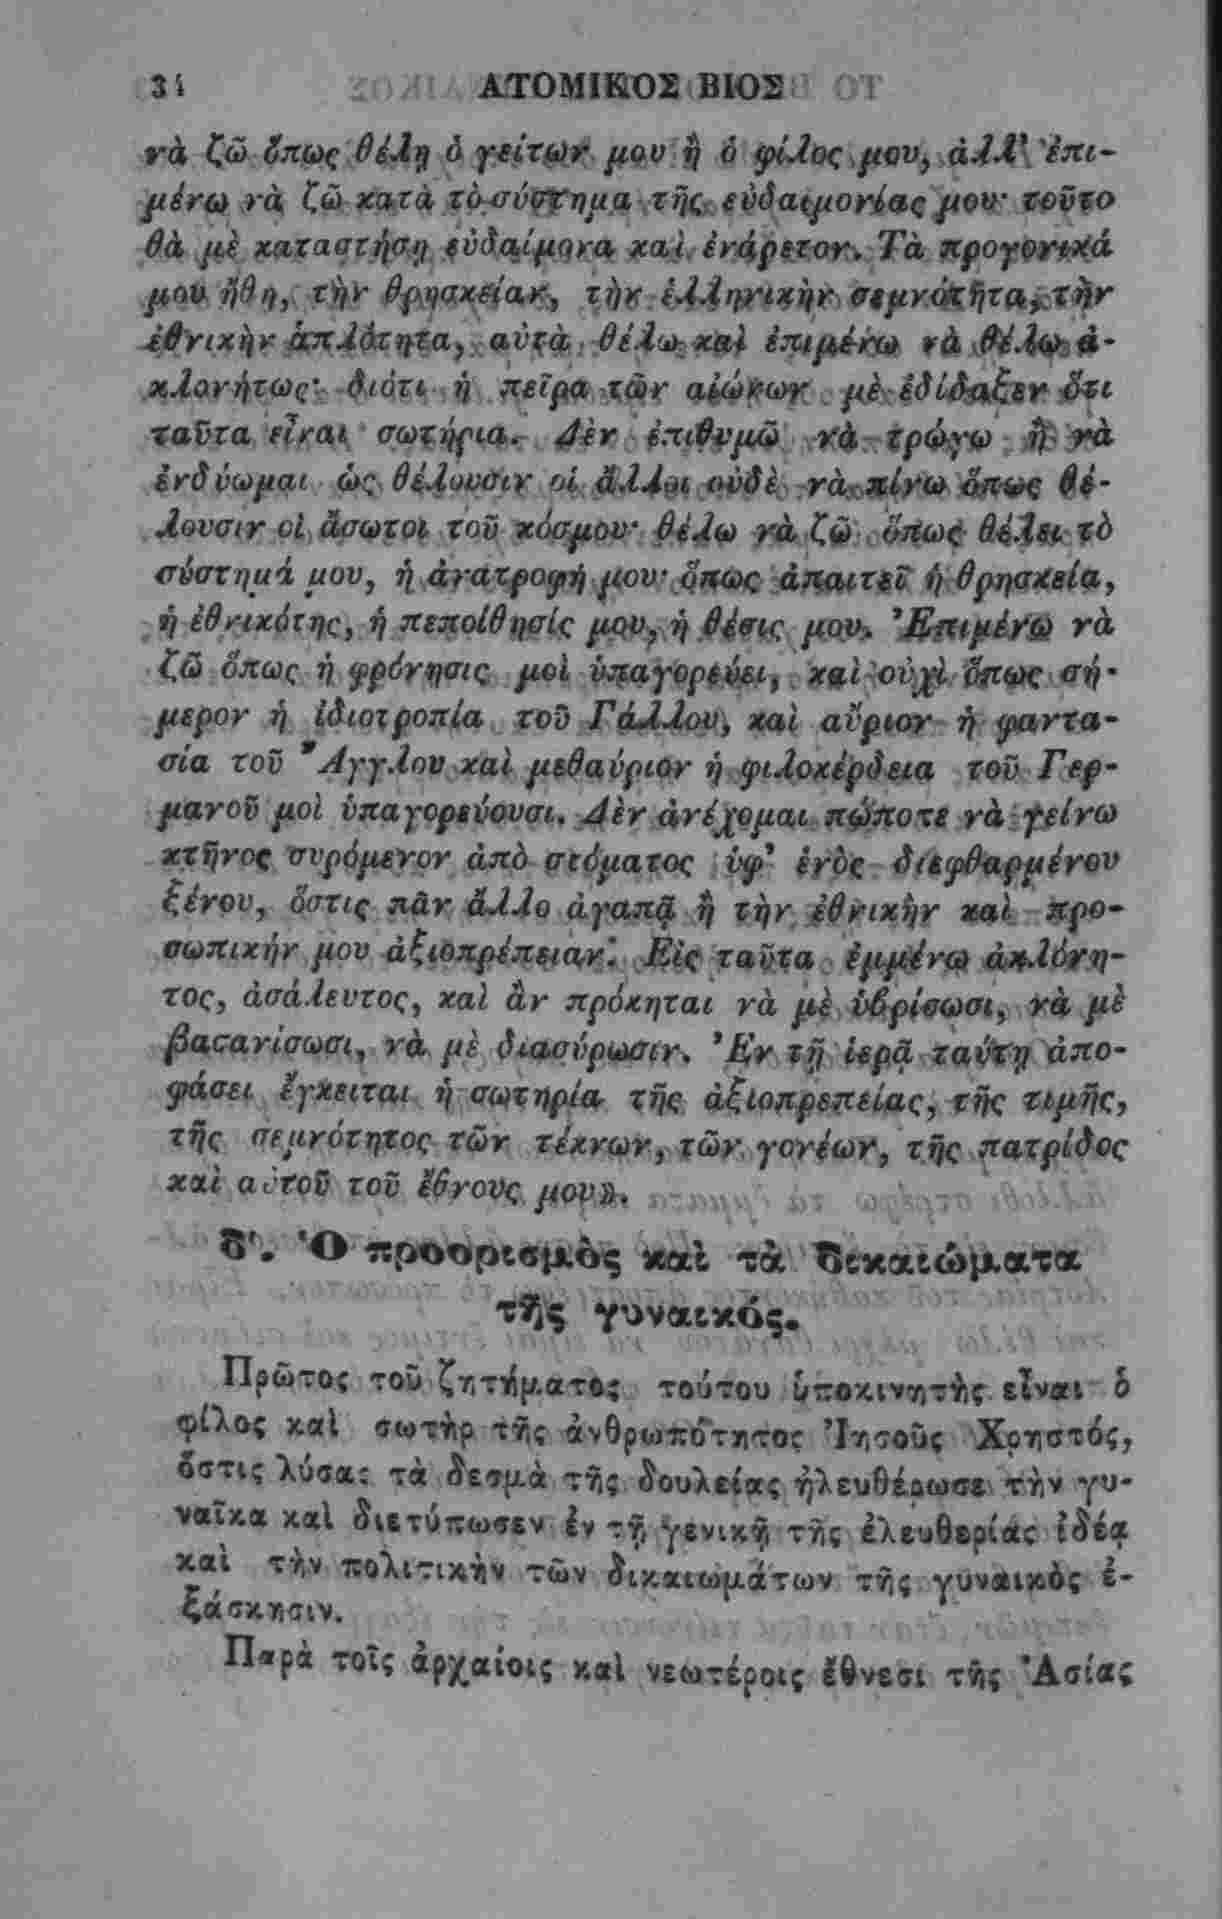 34 ΑΤΟΜΙΚΟΣ ΒΙΟΣ
νὰ ζῶ ὅπως θέλῃ ὁ γείτων μου ἢ ὁ φίλος μου, ἀλλ' ἐπι-
μένω νὰ ζῶ κατὰ τὸ σύστημα τῆς εὐδαιμονίας μου· τοῦτο
θὰ μὲ καταστήσῃ εὐδαίμονα καὶ ἐνάρετον. Τὰ προγονικά
μου ἤθη, τὴν θρησκείαν, τὴν ἑλληνικὴν σεμνότητα, τὴν
ἐθνικὴν ἁπλότητα, αὐτὰ θέλω καὶ ἐπιμένω νὰ θέλω ἀ-
κλονήτως· διότι ἡ πεῖρα τῶν αἰώνων μὲ ἐδίδαξεν ὅτι
ταῦτα εἶναι σωτήρια. Δὲν ἐπιθυμῶ νὰ τρώγω ἢ νὰ
ἐνδύωμαι ὡς θέλουσιν οἱ ἄλλοι οὐδὲ νὰ πίνω ὅπως θέ-
λουσιν οἱ ἄσωτοι τοῦ κόσμου· θέλω νὰ ζῶ ὅπως θέλει τὸ
σύστημά μου, ἡ ἀνατροφή μου· ὅπως ἀπαιτεῖ ἡ θρησκεία,
ἡ ἐθνικότης, ἡ πεποίθησίς μου, ἡ θέσις μου. Ἐπιμένω νὰ
ζῶ ὅπως ἡ φρόνησις μοὶ ὑπαγορεύει, καὶ οὐχὶ ὅπως σή-
μερον ἡ ἰδιοτροπία τοῦ Γάλλου, καὶ αὔριον ἡ φαντα-
σία τοῦ Ἄγγλου καὶ μεθαύριον ἡ φιλοκέρδεια τοῦ Γερ-
μανοῦ μοὶ ὑπαγορεύουσι. Δὲν ἀνέχομαι πώποτε νὰ γείνω
κτῆνος συρόμενον ἀπὸ στόματος ὑφ' ἑνὸς διεφθαρμένου
ξένου, ὅστις πᾶν ἄλλο ἀγαπᾷ ἢ τὴν ἐθνικὴν καὶ προ-
σωπικήν μου ἀξιοπρέπειαν. Εἰς ταῦτα ἐμμένω ἀκλόνη-
τος, ἀσάλευτος, καὶ ἂν πρόκηται νὰ μὲ ὑβρίσωσι, νὰ μὲ
βασανίσωσι, νὰ μὲ διασύρωσιν. Ἐν τῇ ἱερᾷ ταύτῃ ἀπο-
φάσει ἔγκειται ἡ σωτηρία τῆς ἀξιοπρεπείας, τῆς τιμῆς,
τῆς σεμνότητος τῶν τέκνων, τῶν γονέων, τῆς πατρίδος
καὶ αὐτοῦ τοῦ ἔθνους μου».
δ'. Ὁ προορισμὸς καὶ τὰ δικαιώματα
τῆς γυναικός.
Πρῶτος τοῦ ζητήματος τούτου ὑποκινητὴς εἶναι ὁ
φίλος καὶ σωτὴρ τῆς ἀνθρωπότητος Ἰησοῦς Χρηστός,
ὅστις λύσας τὰ δεσμὰ τῆς δουλείας ἠλευθέρωσε τὴν γυ-
ναῖκα καὶ διετύπωσεν ἐν τῇ γενικῇ τῆς ἐλευθερίας ἰδέᾳ
καὶ τὴν πολιτικὴν τῶν δικαιωμάτων τῆς γυναικὸς ἐ-
ξάσκησιν.
Παρὰ τοῖς ἀρχαίοις καὶ νεωτέροις ἔθνεσι τῆς Ἀσίας